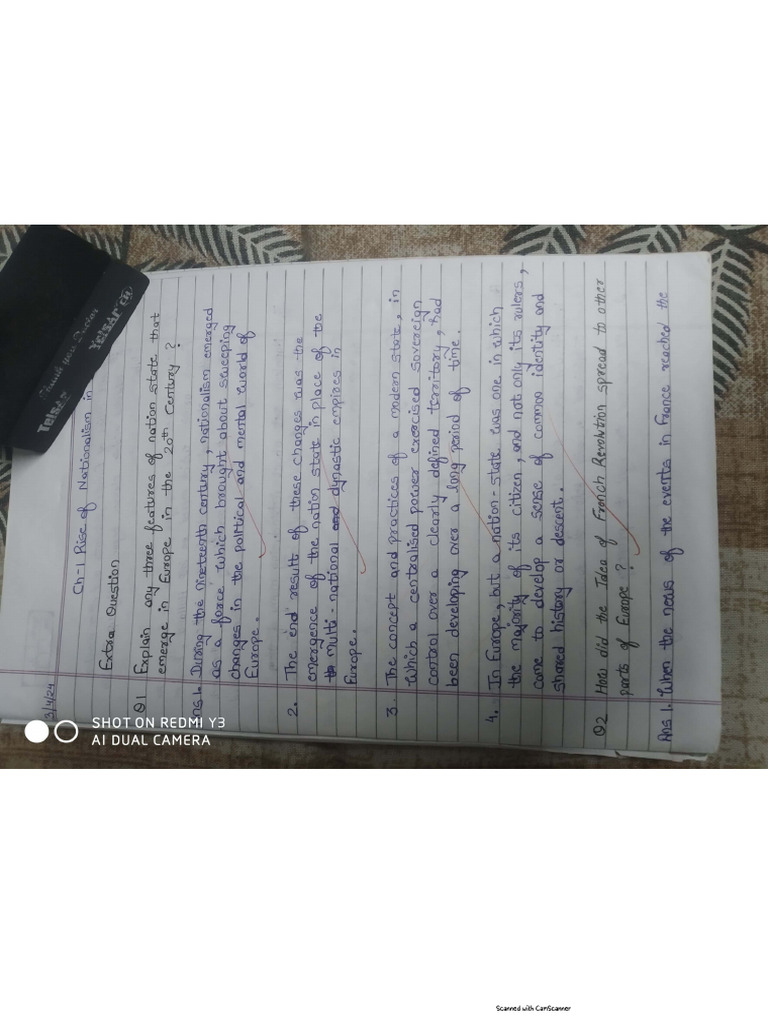 3/4/24
Ch-1 Rise of Nationalism in
Extra Question
Q1 Explain any three features of nation state that
emerge in Europe in the 20th Century ?
Ans1. During the nineteenth century, nationalism emerged
as a force which brought about sweeping
changes in the political and mental world of
Europe.
2. The end result of these changes was the
emergence of the nation state in place of the
multi-national and dynastic empires in
Europe.
3. The concept and practices of a modern state, in
which a centralised power exercised sovereign
control over a clearly defined territory, had
been developing over a long period of time.
4. In Europe, but a nation-state was one in which
the majority of its citizen, and not only its rulers,
came to develop a sense of common identity and
shared history or descent.
Q2 How did the Idea of French Revolution spread to other
parts of Europe ?
Ans 1. When the news of the events in France reached the
Thank you Doctor
TelSAR
TelSAR CH
SHOT ON REDMI Y3
AI DUAL CAMERA
Scanned with CamScanner